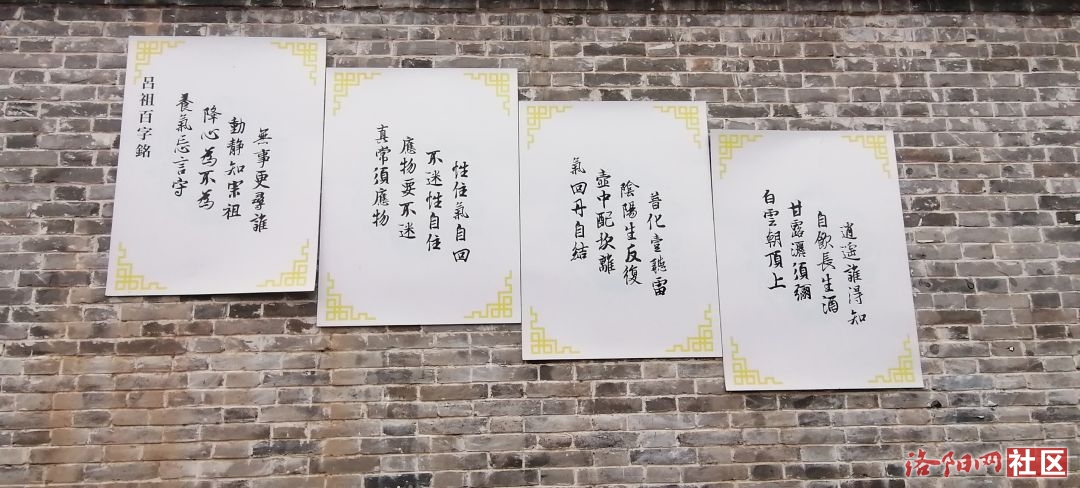 呂祖百字銘
養氣忘言守
降心為不為
動靜知宗祖
無事更尋誰
真常須應物
應物要不迷
不迷性自住
性住氣自回
氣回丹自結
壺中配坎離
陰陽生反復
普化壹聲雷
白雲朝頂上
甘露灑須彌
自飲長生酒
逍遙誰得知
洛阳网社区